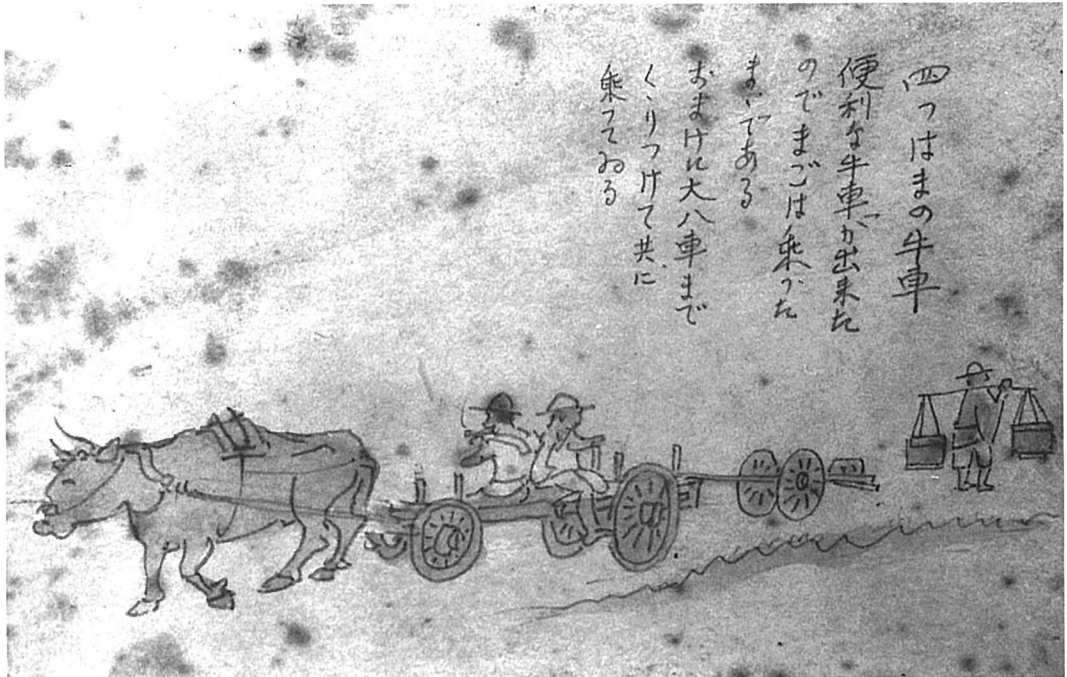 四つはまの牛車
便利な牛車が出来た
のでまごは乗った
まゝである
おまけに大八車まで
くゝりつけて共に
乗つてゐる